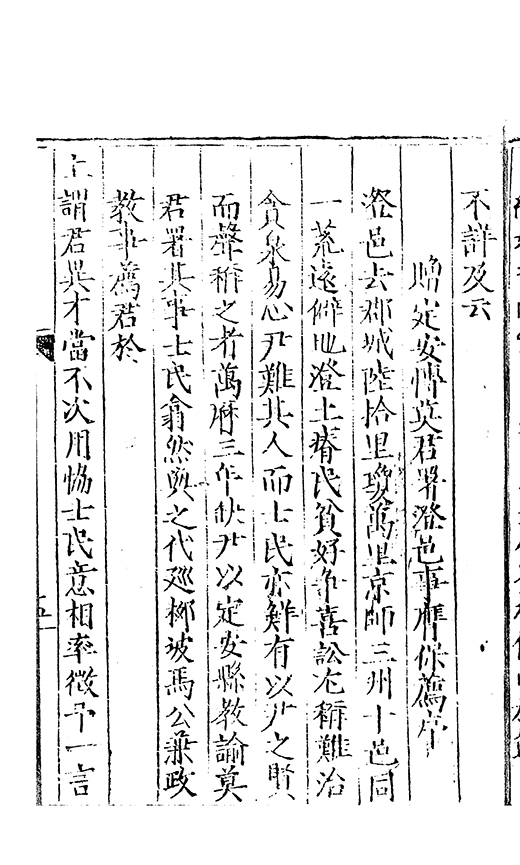 不詳及云
贈定安博莫君署澄邑事膺保薦序
澄邑去郡城陸拾里瓊萬里京師三州十邑同
一荒遠僻地澄土瘠民貧好爭喜訟尤稱難治
貪泉易心尹難其人而士民亦鮮有以尹之賢
而聲稱之者萬曆三年缺尹以定安縣教諭莫
君署其事士民翕然與之代廵柳坡馬公兼政
教事薦君於
上謂君異才當不次用愜士民意相率徵予一言
五